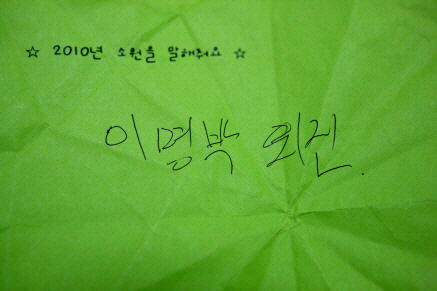 ☆ 2010년 소원을 말해줘요 ☆
이명박 퇴진.